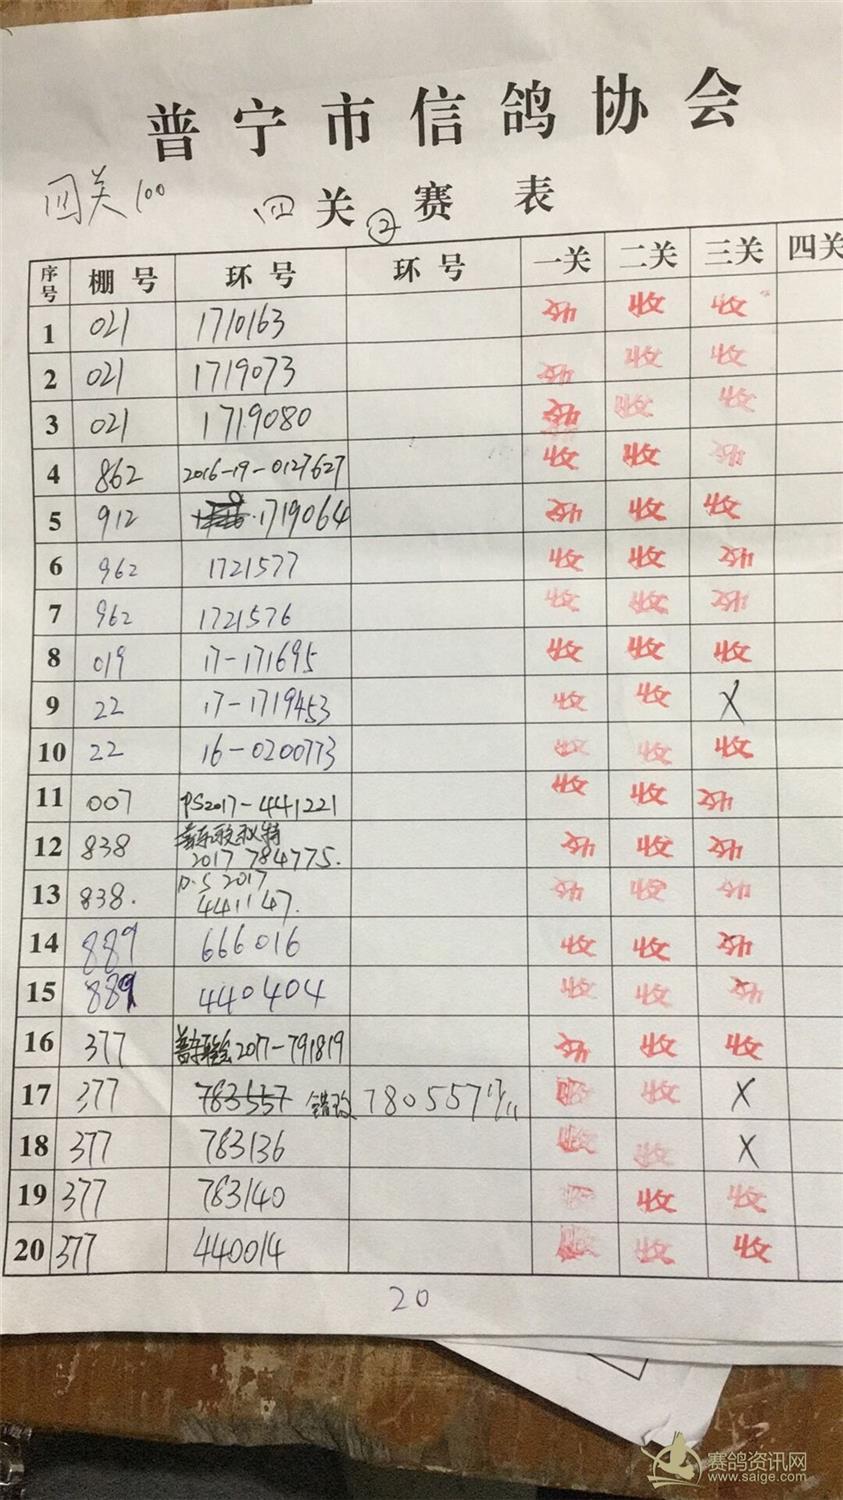 普宁市信鸽协会
四关100 四关②赛表
序号 棚号 环号 环号 一关 二关 三关 四关
1 021 1710163 收 收 收
2 021 1719073 收 收 收
3 021 1719080 收 收 收
4 862 2016-19-0127627 收 收 收
5 912 1719064 收 收 收
6 962 1721577 收 收 收
7 962 1721576 收 收 收
8 019 17-171695 收 收 收
9 22 17-1719453 收 收 X
10 22 16-0200773 收 收 收
11 007 PS2017-441221 收 收 收
12 838 2017 784775. 收 收 收
13 838. P.S 2017 441147. 收 收 收
14 889 666016 收 收 收
15 889 440404 收 收 收
16 377 2017-791819 收 收 收
17 377 783557 错改 780557 收 收 X
18 377 783136 收 收 X
19 377 783140 收 收 收
20 377 440014 收 收 收
20
赛鸽资讯网
www.saige.com